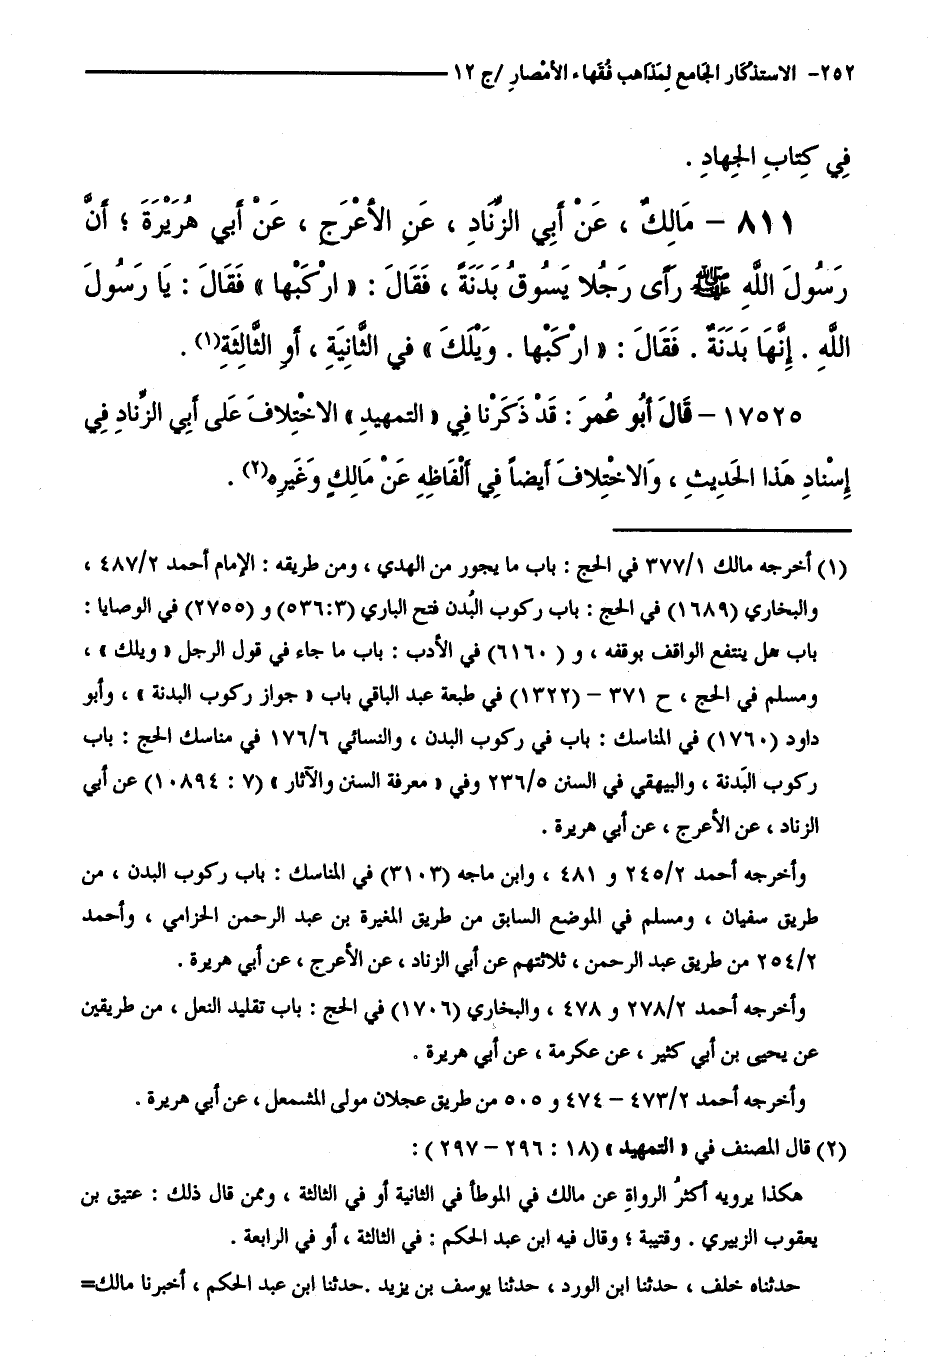 ٢٥٢- الاستذكار الجامع لمذاهب فُقهاء الأمْصار /ج ١٢
فِي كِتابِ الجِهادِ .
٨١١ – مَالِكٌ ، عَنْ أَبِي الزِّنَادِ ، عَنِ الأَعْرَجِ ، عَنْ أَبي هُرَيْرَةَ ؛ أَنَّ
رَسُولَ اللَّهِ ﷺ رَأَى رَجُلا يَسُوقُ بَدَنَةً ، فَقَالَ : « ارْكَبْها » فَقَالَ : يَا رَسُولَ
اللَّهِ . إِنَّهَا بَدَنَةٌ . فَقَالَ : « ارْكَبْها . وَيْلَكَ » في الثَّانِيَةِ ، أَوِ الثَّالِثَةِ(١) .
١٧٥٢٥ – قَالَ أَبُو عُمرَ : قَدْ ذَكَرْنا فِي « التمهيدِ » الاخْتِلافَ عَلى أَبي الزِّنادِ فِي
إِسْنادِ هَذا الحَديثِ ، وَالاخْتِلافَ أَيضاً فِي أَلْفَاظِهِ عَنْ مَالِكٍ وَغَيرِه(٢) .
(١) أخرجه مالك ٣٧٧/١ في الحج : باب ما يجور من الهدي ، ومن طريقه : الإمام أحمد ٤٨٧/٢ ،
والبخاري (١٦٨٩) في الحج : باب ركوب البُدن فتح الباري (٥٣٦:٣) و (٢٧٥٥) في الوصايا :
باب هل ينتفع الواقف بوقفه ، و ( ٦١٦٠) في الأدب : باب ما جاء في قول الرجل « ويلك » ،
ومسلم في الحج ، ح ٣٧١ – (١٣٢٢) في طبعة عبد الباقي باب « جواز ركوب البدنة » ، وأبو
داود (١٧٦٠) في المناسك : باب في ركوب البدن ، والنسائي ١٧٦/٦ في مناسك الحج : باب
ركوب البَدنة ، والبيهقي في السنن ٢٣٦/٥ وفي « معرفة السنن والآثار » (٧ : ١٠٨٩٤) عن أبي
الزناد ، عن الأعرج ، عن أبي هريرة .
وأخرجه أحمد ٢٤٥/٢ و ٤٨١ ، وابن ماجه (٣١٠٣) في المناسك : باب ركوب البدن ، من
طريق سفيان ، ومسلم في الموضع السابق من طريق المغيرة بن عبد الرحمن الحزامي ، وأحمد
٢٥٤/٢ من طريق عبد الرحمن ، ثلاثتهم عن أبي الزناد ، عن الأعرج ، عن أبي هريرة .
وأخرجه أحمد ٢٧٨/٢ و ٤٧٨ ، والبخاري (١٧٠٦) في الحج : باب تقليد النعل ، من طريقين
عن يحيى بن أبي كثير ، عن عكرمة ، عن أبي هريرة .
وأخرجه أحمد ٤٧٣/٢ – ٤٧٤ و ٥٠٥ من طريق عجلان مولى المشمعل ، عن أبي هريرة .
(٢) قال المصنف في « التمهيد » (١٨ : ٢٩٦ – ٢٩٧ ) :
هكذا يرويه أكثرُ الرواةِ عن مالك في الموطأ في الثانية أو في الثالثة ، وممن قال ذلك : عتيق بن
يعقوب الزبيري . وقتيبة ؛ وقال فيه ابن عبد الحكم : في الثالثة ، أو في الرابعة .
حدثناه خلف ، حدثنا ابن الورد ، حدثنا يوسف بن يزيد .حدثنا ابن عبد الحكم ، أخبرنا مالك=